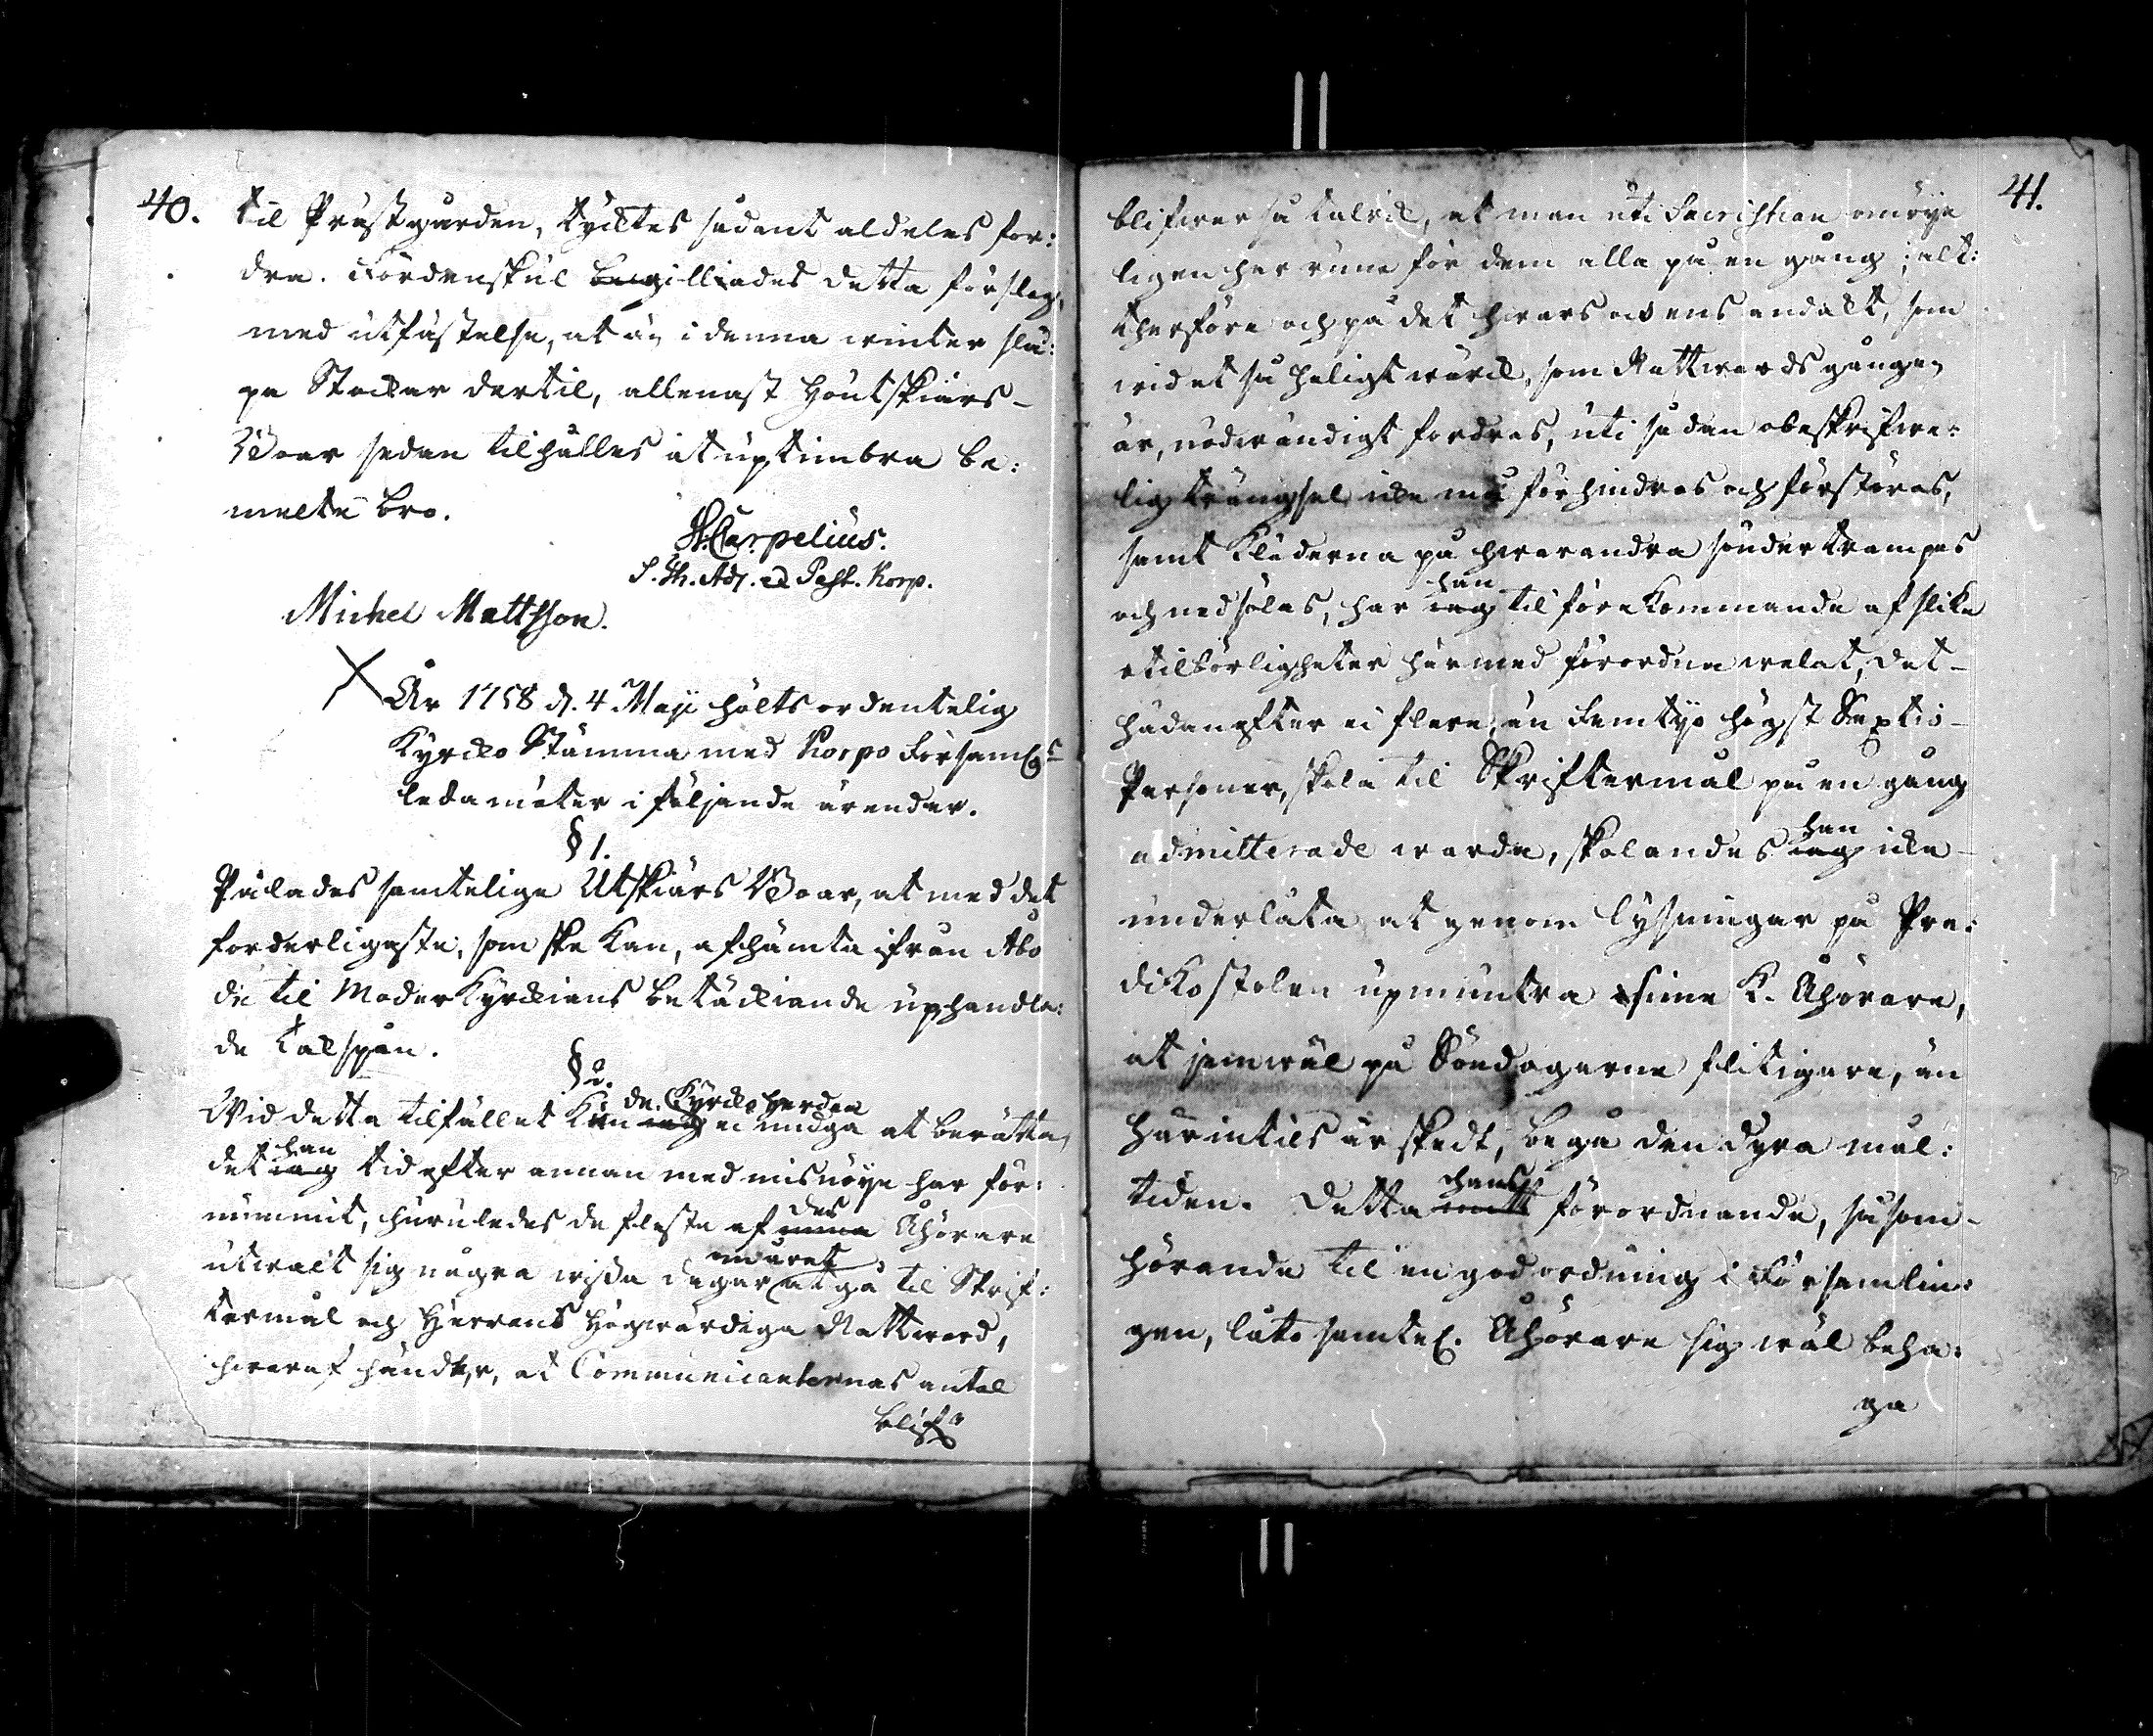 40.
til Prästgården, tycktes sådant aldeles for:
dra. Fördenskul begilliades detta förslag,
med utfästelse, at än i denna winter slä:
pa Stockar dertil, allenast Houtskiärs-
Boar sedan tilhålles at uptimbra be:
melte bro.
A. Carpelius.
S. Th. Adj. et Past. Korp.
Michel Mattsson.
År 1758 d. 4 Maji hölts ordentelig
Kyrcko Stämma med Korpo Församlgs
ledamöter i följande ärender.
§ 1.
Pålades samtelige Utskiärs Boar, at med det
forderligaste, som ske kan, afhämta ifrån Åbo
de til Moder Kyrckians betäckiande uphandla:
de Takspån.
§ 2.
de Kyrckoherden
Wid detta tilfället Kun iag ei undgå at berätta,
han
det iag tid efter annan med misnöye har för:
des
nummit, huruledes de fleste af mina Åhörare
utwalt sig några wissa dagar at gå til Skrif:
termål och Herrans Högwärdiga Nattward,
hwaraf händer, at Communicanternas antal
blifr
41.
blifwer så talrik, at man uti Sacristian omöye
ligen har rum för dem alla på en gång; alt:
therföre och på det hwars och ens andakt, som
wid et så heligt wärck, som Nattwards gången
är, nödwändigt fordras, uti sådan obeskrifwe:
lig trängsel icke må förhindras och förstöras,
samt Kläderna på hwarandra söndertrampas
han
och nedsölas, har iag til förekommande af slika
otilbörligheter härmed förordna welat, det-
hädanefter ei flere, än Femtyo högst Sextio-
Personer, skola til Skriftermål på en gång
han
admitterade warda, skolandes iag icke
underlåta at genom lysningar på Pre:
dikostolen upmuntra sina K. Åhörare,
at jemwäl på Söndagarne flitigare, än
härintils är skedt, begå den dyra mål:
hans
tiden. Detta mitt förordnande, såsom-
hörande til en god ordning i Församlin:
gen, läto samtel. Åhörare sig wäl beha:
ga